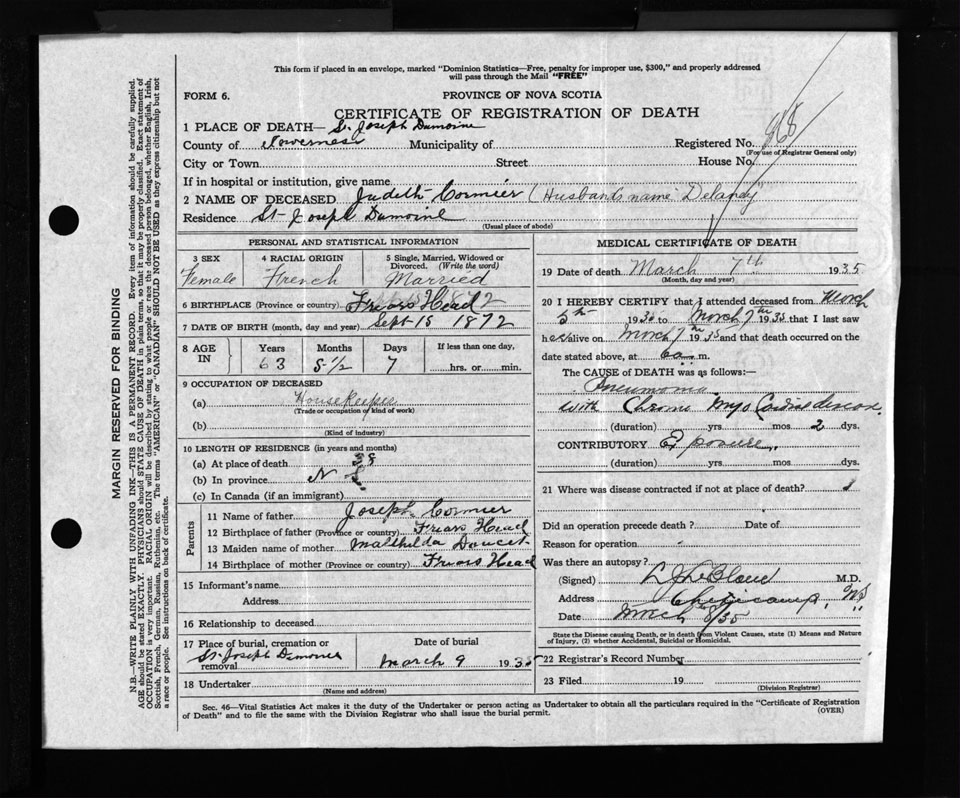 This form if placed in an envelope, marked "Dominion Statistics—Free, penalty for improper use, $300," and properly addressed
will pass through the Mail "FREE"
FORM 6.
PROVINCE OF NOVA SCOTIA
CERTIFICATE OF REGISTRATION OF DEATH
1 PLACE OF DEATH— St. Joseph Dumoine
County of Inverness Municipality of Registered No. 868
(For use of Registrar General only)
City or Town Street House No.
If in hospital or institution, give name
2 NAME OF DECEASED Judith Cormier (Husbands name "Delaney"
Residence St Joseph Dumoine
(Usual place of abode)
PERSONAL AND STATISTICAL INFORMATION
3 SEX Female
4 RACIAL ORIGIN French
5 Single, Married, Widowed or Divorced. (Write the word) Married
6 BIRTHPLACE (Province or country) Friars Head
7 DATE OF BIRTH (month, day and year) Sept 15 1872
8 AGE IN Years 63 Months 5 1/2 Days 7 If less than one day, hrs. or min.
9 OCCUPATION OF DECEASED
(a) Housekeeper
(Trade or occupation or kind of work)
(b)
(Kind of industry)
10 LENGTH OF RESIDENCE (in years and months)
(a) At place of death 38
(b) In province N S
(c) In Canada (if an immigrant)
Parents
11 Name of father Joseph Cormier
12 Birthplace of father (Province or country) Friars Head
13 Maiden name of mother Malthilda Doucet
14 Birthplace of mother (Province or country) Friars Head
15 Informant's name
Address
16 Relationship to deceased
17 Place of burial, cremation or removal St. Joseph Dumoine
Date of burial March 9 1935
18 Undertaker
(Name and address)
MEDICAL CERTIFICATE OF DEATH
19 Date of death March 7th 1935
(Month, day and year)
20 I HEREBY CERTIFY that I attended deceased from March
5th 1935 to March 7th 1935 that I last saw
her alive on March 7th 1935 and that death occurred on the
date stated above, at 6 a. m.
The CAUSE OF DEATH was as follows:—
Pneumonia
with Chronic Myo Cardial
(duration) yrs. mos. 2 dys.
CONTRIBUTORY Exposure
(duration) yrs. mos. dys.
21 Where was disease contracted if not at place of death?
Did an operation precede death? Date of
Reason for operation
Was there an autopsy?
(Signed) M.D.
Address Cheticamp, NS
Date March 8/35
State the Disease causing Death, or in death from Violent Causes, state (1) Means and Nature
of Injury, (2) whether Accidental, Suicidal or Homicidal.
22 Registrar's Record Number
23 Filed 19
(Division Registrar)
Sec. 46—Vital Statistics Act makes it the duty of the Undertaker or person acting as Undertaker to obtain all the particulars required in the "Certificate of Registration
of Death" and to file the same with the Division Registrar who shall issue the burial permit.
(OVER)
MARGIN RESERVED FOR BINDING
N.B.—WRITE PLAINLY WITH UNFADING INK—THIS IS A PERMANENT RECORD. Every item of information should be carefully supplied.
AGE should be stated EXACTLY. PHYSICIANS should STATE CAUSE OF DEATH in plain terms, so that it may be properly classified. Exact statement of
OCCUPATION is very important. RACIAL ORIGIN will be described by stating to what people or race the deceased person belonged, whether English, Irish,
Scottish, French, German, Russian, Ruthenian, etc. The terms "AMERICAN" or "CANADIAN" SHOULD NOT BE USED as they express citizenship but not
a race or people. See instructions on back of certificate.